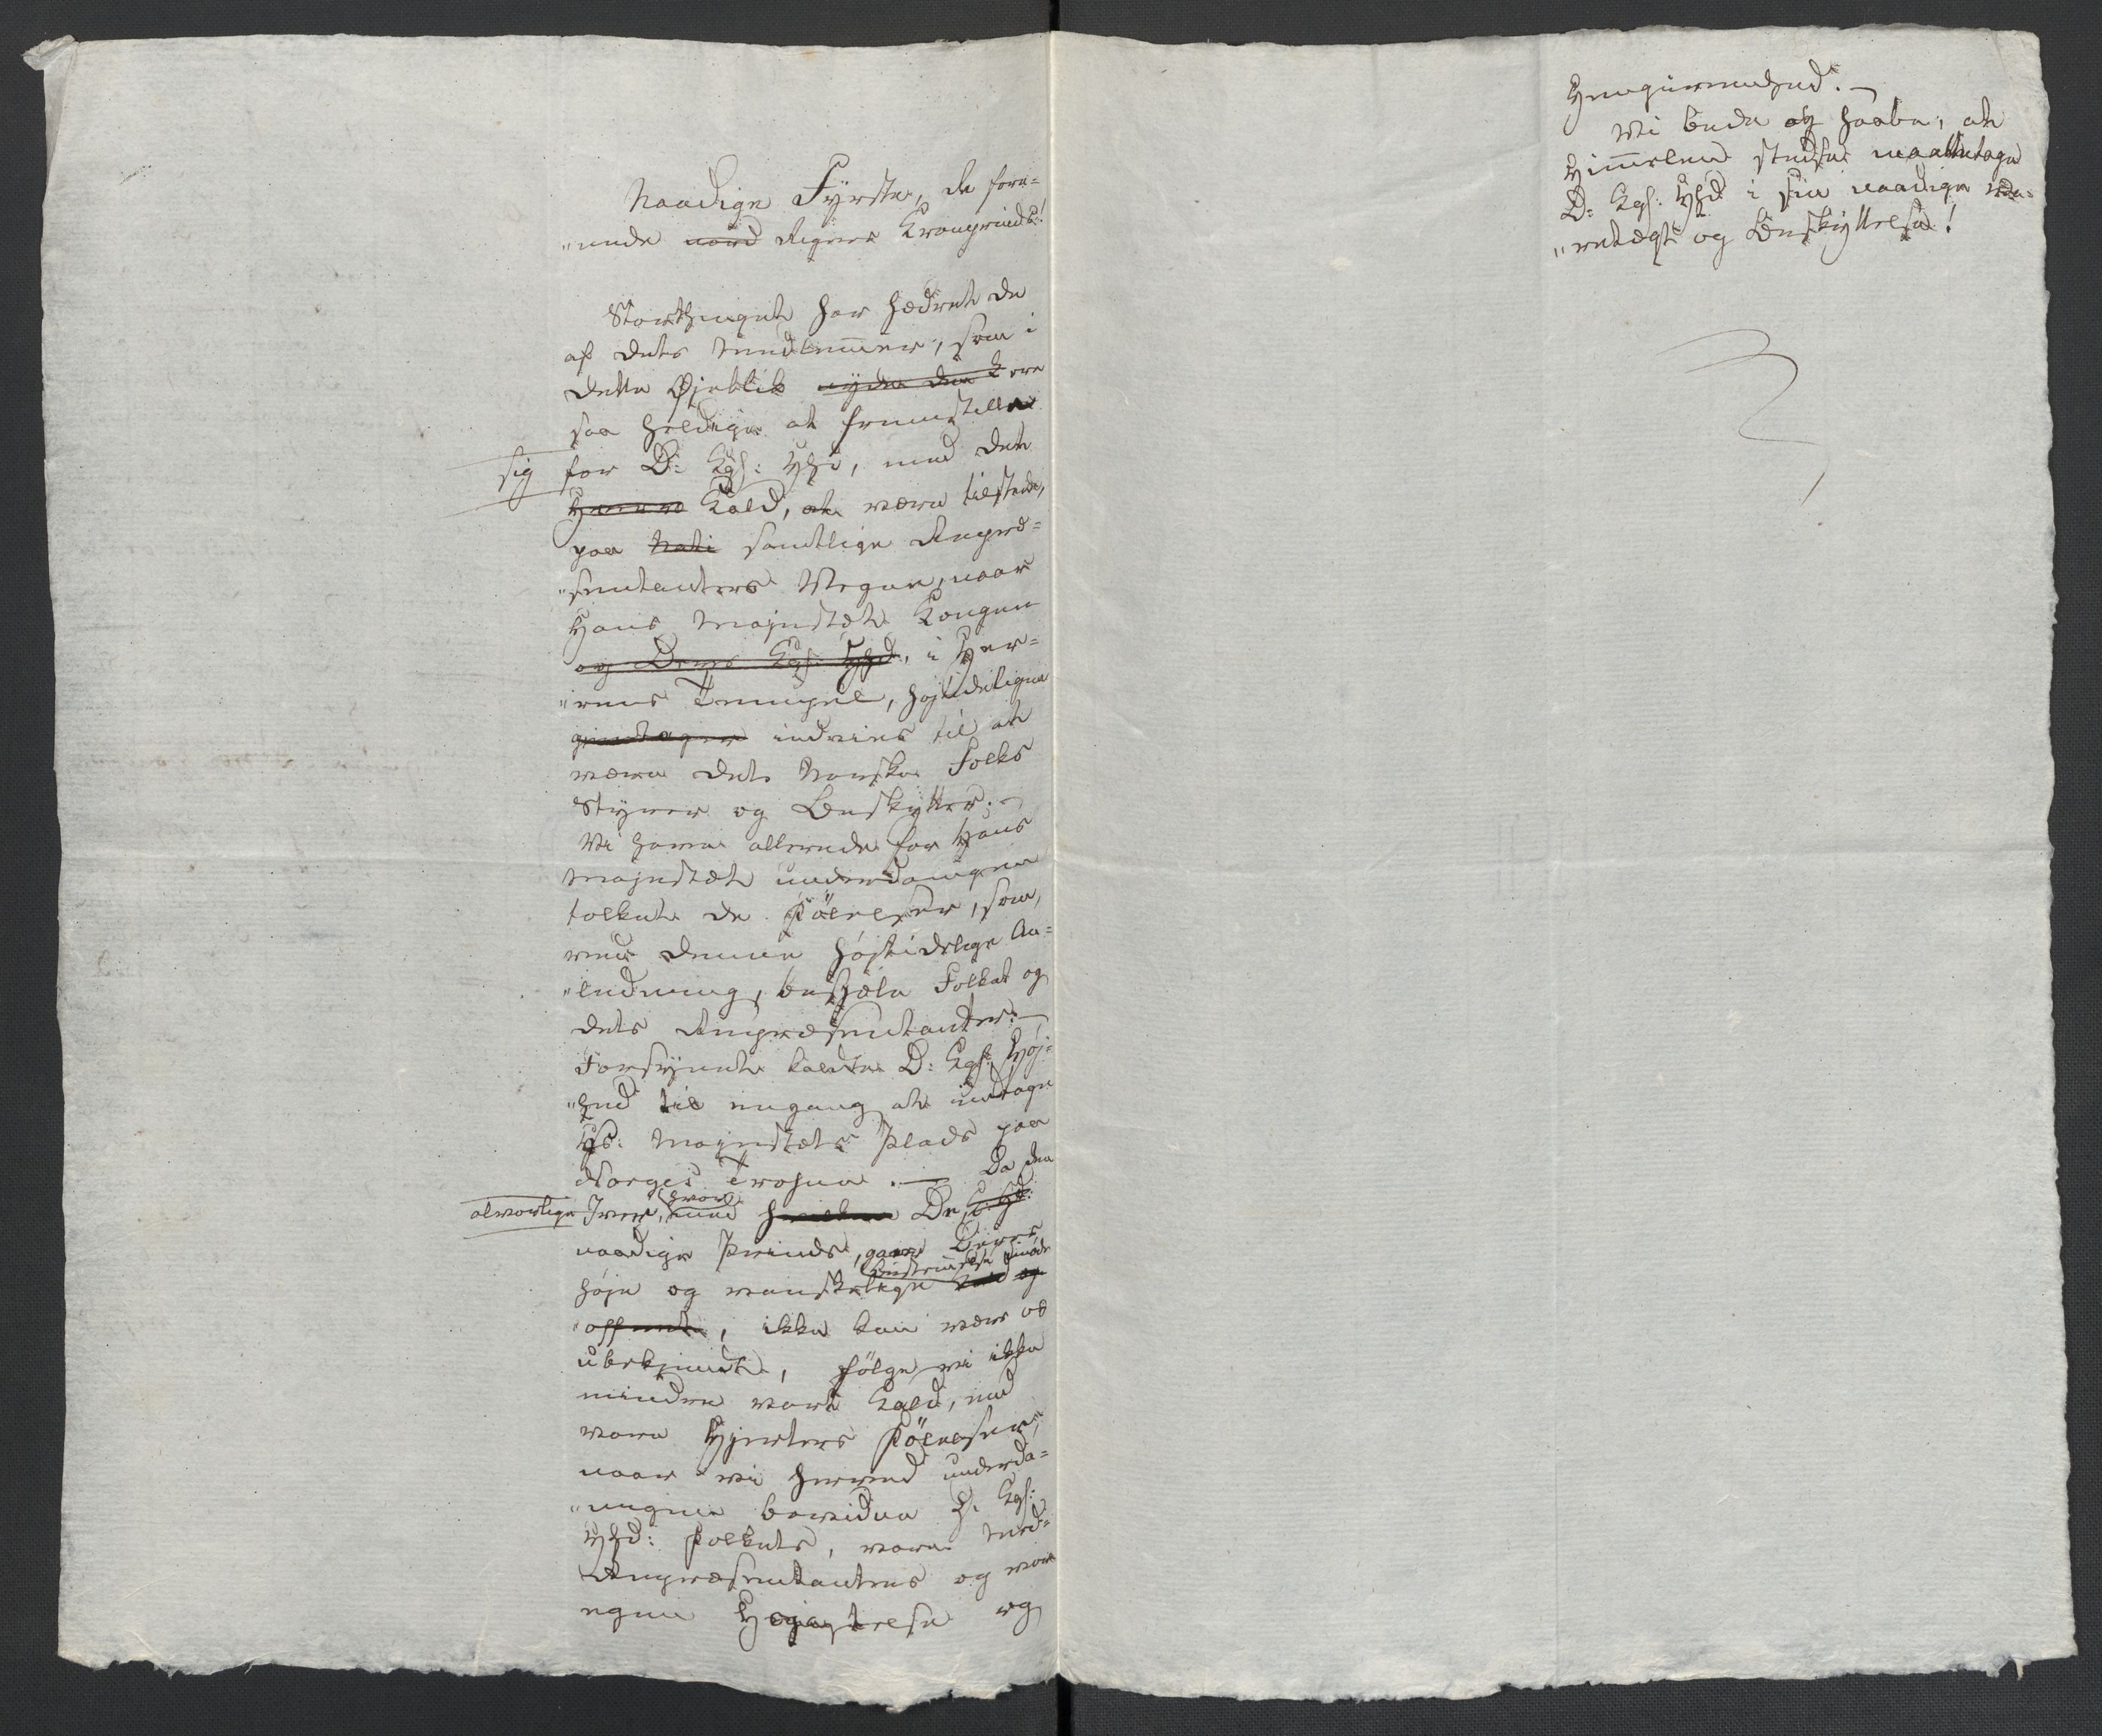 Naadige Fyrste, de fore-
"nede nord Rigers Kronprinds!
Storthinget har hædret de
af dets Medlemmer, som i
dette Øjeblik nyde den ere
saa heldige at fremstille
sig for D: Kgl: Hhd, med det
Kald, at være tilstede,
paa Nati samtlige Repræ-
"sentanters Vegne, naar
Hans Majestæt Kongen
og Deres Kgl: Hhd, i Her-
"rens Tempel, højtideligen
indvies til at
være det Norske Folks
Styrer og Beskytter. -
Vi have allerede for Hans
Majestæt underdanigen
tolket de Følelser, som,
ved denne højtidelige An-
"ledning, besjæle Folket og
dets Repræsentanter. -
Forsynet kaldte D: Kgl: Høj-
"hed til engang at indtage
Hs: Majestæts Plads paa
Norges Trohne. - Da den
alvorlige Iver, hvormed hvilken De,
naadige Prinds, gaae Deres
høje og vanskelige Bestemmelse imøde
, ikke kan være os
ubekjendt, følge vi ikke
mindre vort Kald, end
vore Hjerters Følelser,
naar vi herved underda-
"nigen bevidne D: Kgl:
Hhd: Folkets, vore Med-
Repræsentanters og vor
egen Højagtelse og
Hengivenhed. -
Vi bede og haabe, at
Himmelen stedse modtage
D: Kgl: Hhd i sin naadige Va-
"retægt og Beskyttelse!